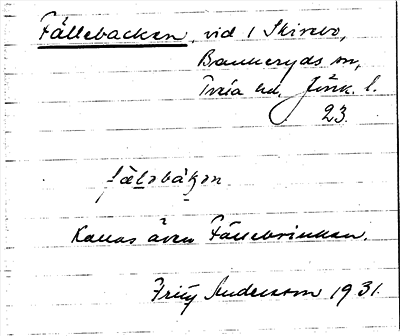 Fällebacken, vid 1 Skinebo,
Bankeryds sn,
Tveta hd, Jönk. l.
23.
fälebákan
Kallas även Fällebrinken.
Fritz Andersson 1931.